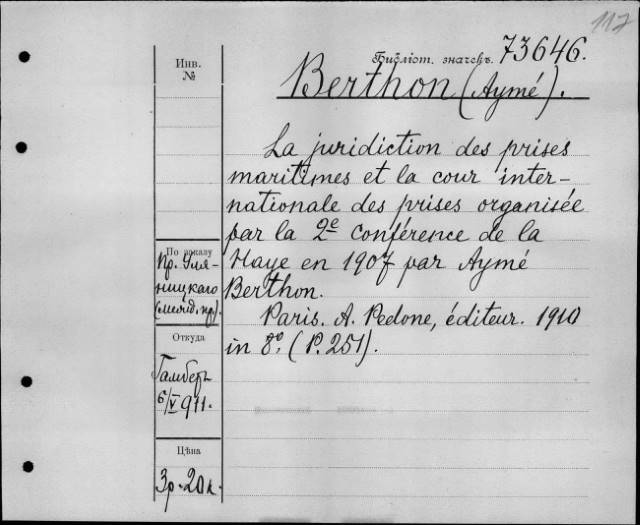 117
Библіот. значекъ. 73646.
Инв.
№
Berthon (Aymé).
La juridiction des prises
maritimes et la cour inter-
nationale des prises organisée
par la 2e conférence de la
Haye en 1907 par Aymé
Berthon.
Paris. A. Pedone, éditeur. 1910
in 8º. (P. 251).
По заказу
Пр. Уля-
ницкаго
(межд. пр).
Откуда
Гамберъ
6/V 911.
Цѣна
3р. 20к.